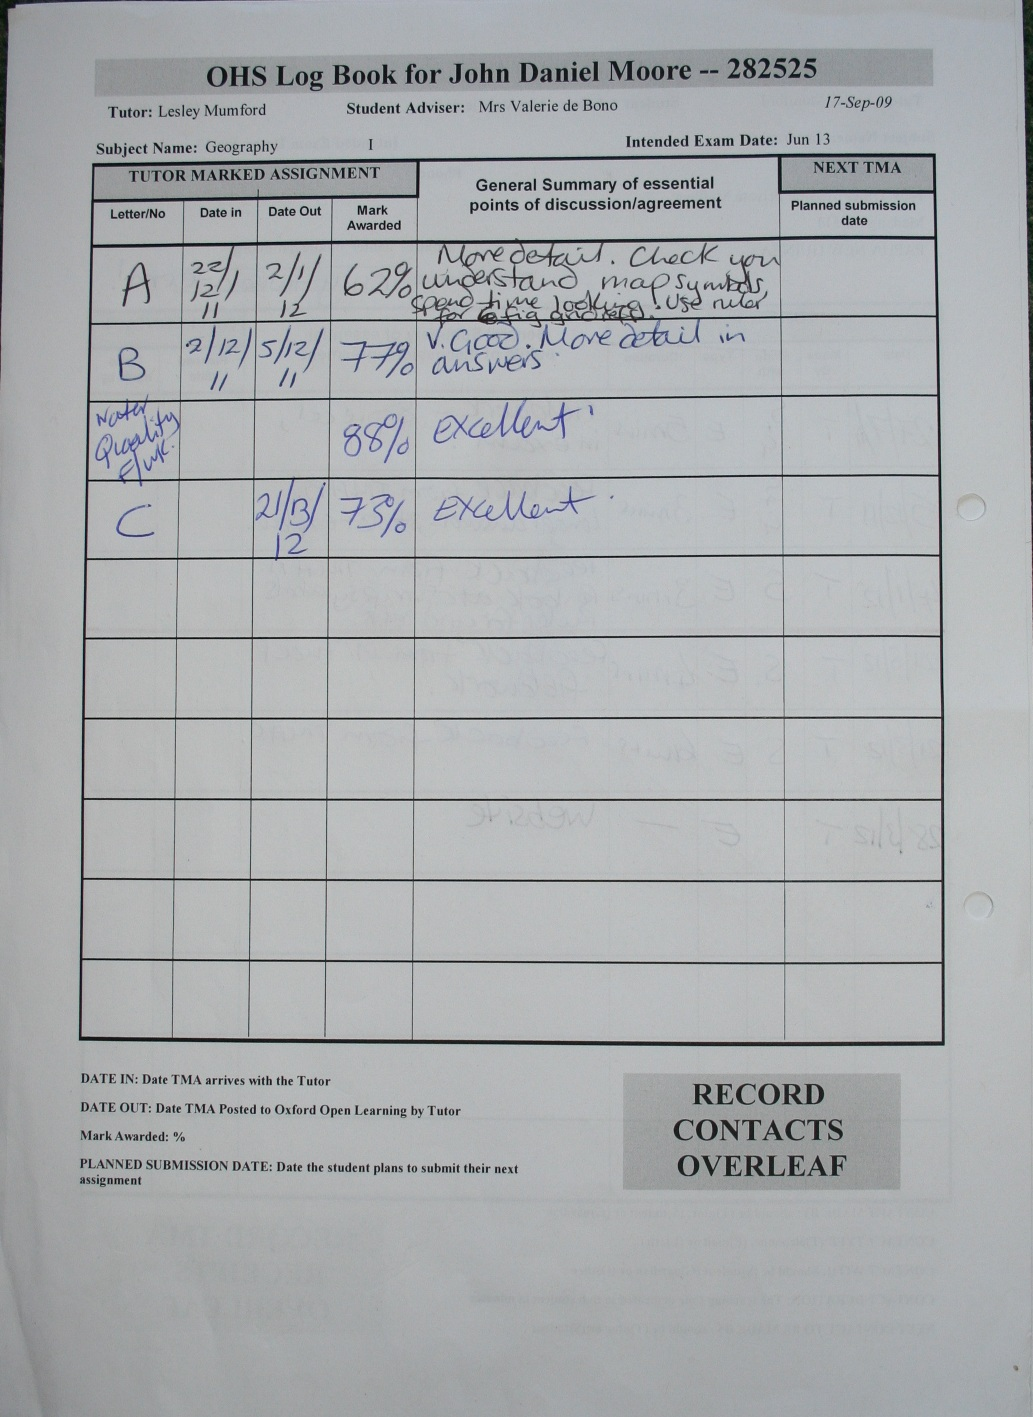 OHS Log Book for John Daniel Moore -- 282525
Tutor: Lesley Mumford Student Adviser: Mrs Valerie de Bono 17-Sep-09
Subject Name: Geography I Intended Exam Date: Jun 13
TUTOR MARKED ASSIGNMENT
NEXT TMA
Letter/No
Date in
Date Out
Mark
Awarded
General Summary of essential
points of discussion/agreement
Planned submission
date
A
22/
12/1
11
2/1/
12
62%
More detail. Check you
understand map symbols,
spend time looking! Use ruler
for 6 fig grid
B
2/12/
11
5/12/
11
77%
V. Good. More detail in
answers
Water
Quality
F/wk.
88%
Excellent
C
21/3/
12
73%
Excellent
DATE IN: Date TMA arrives with the Tutor
DATE OUT: Date TMA Posted to Oxford Open Learning by Tutor
Mark Awarded: %
PLANNED SUBMISSION DATE: Date the student plans to submit their next
assignment
RECORD
CONTACTS
OVERLEAF